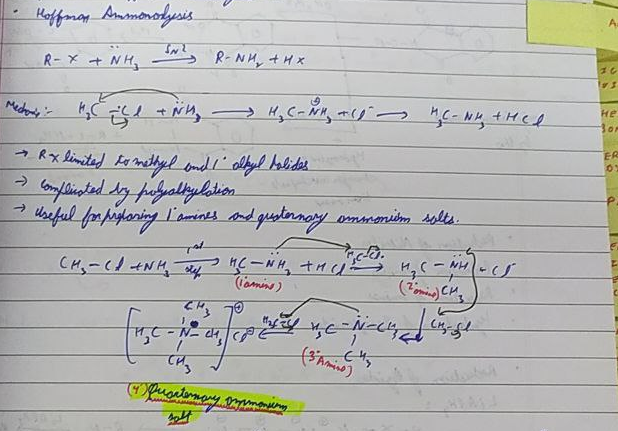 • Hoffman Ammonolysis
R-X + N̈H₃ —SN²→ R-NH₂ + HX
H₃C-Cl + N̈H₃ → H₃C-NH₃⊕ + Cl⁻ → H₃C-NH₂ + HCl
→ RX limited to methyl and 1° alkyl halides
→ complicated by polyalkylation
→ Useful for preparing 1° amines and quaternary ammonium salts.
CH₃-Cl + NH₃ —1st step→ H₃C-N̈H₂ + HCl —H₃C-Cl→ H₃C-N̈H + Cl⁻
(1° amine) (2° amine) CH₃
CH₃ ⊕
[H₃C-N-CH₃] Cl⊖ ← H₃C-Cl H₃C-N̈-CH₃ CH₃-Cl
CH₃ (3° Amine) CH₃
(4°) Quarternary ammonium
salt